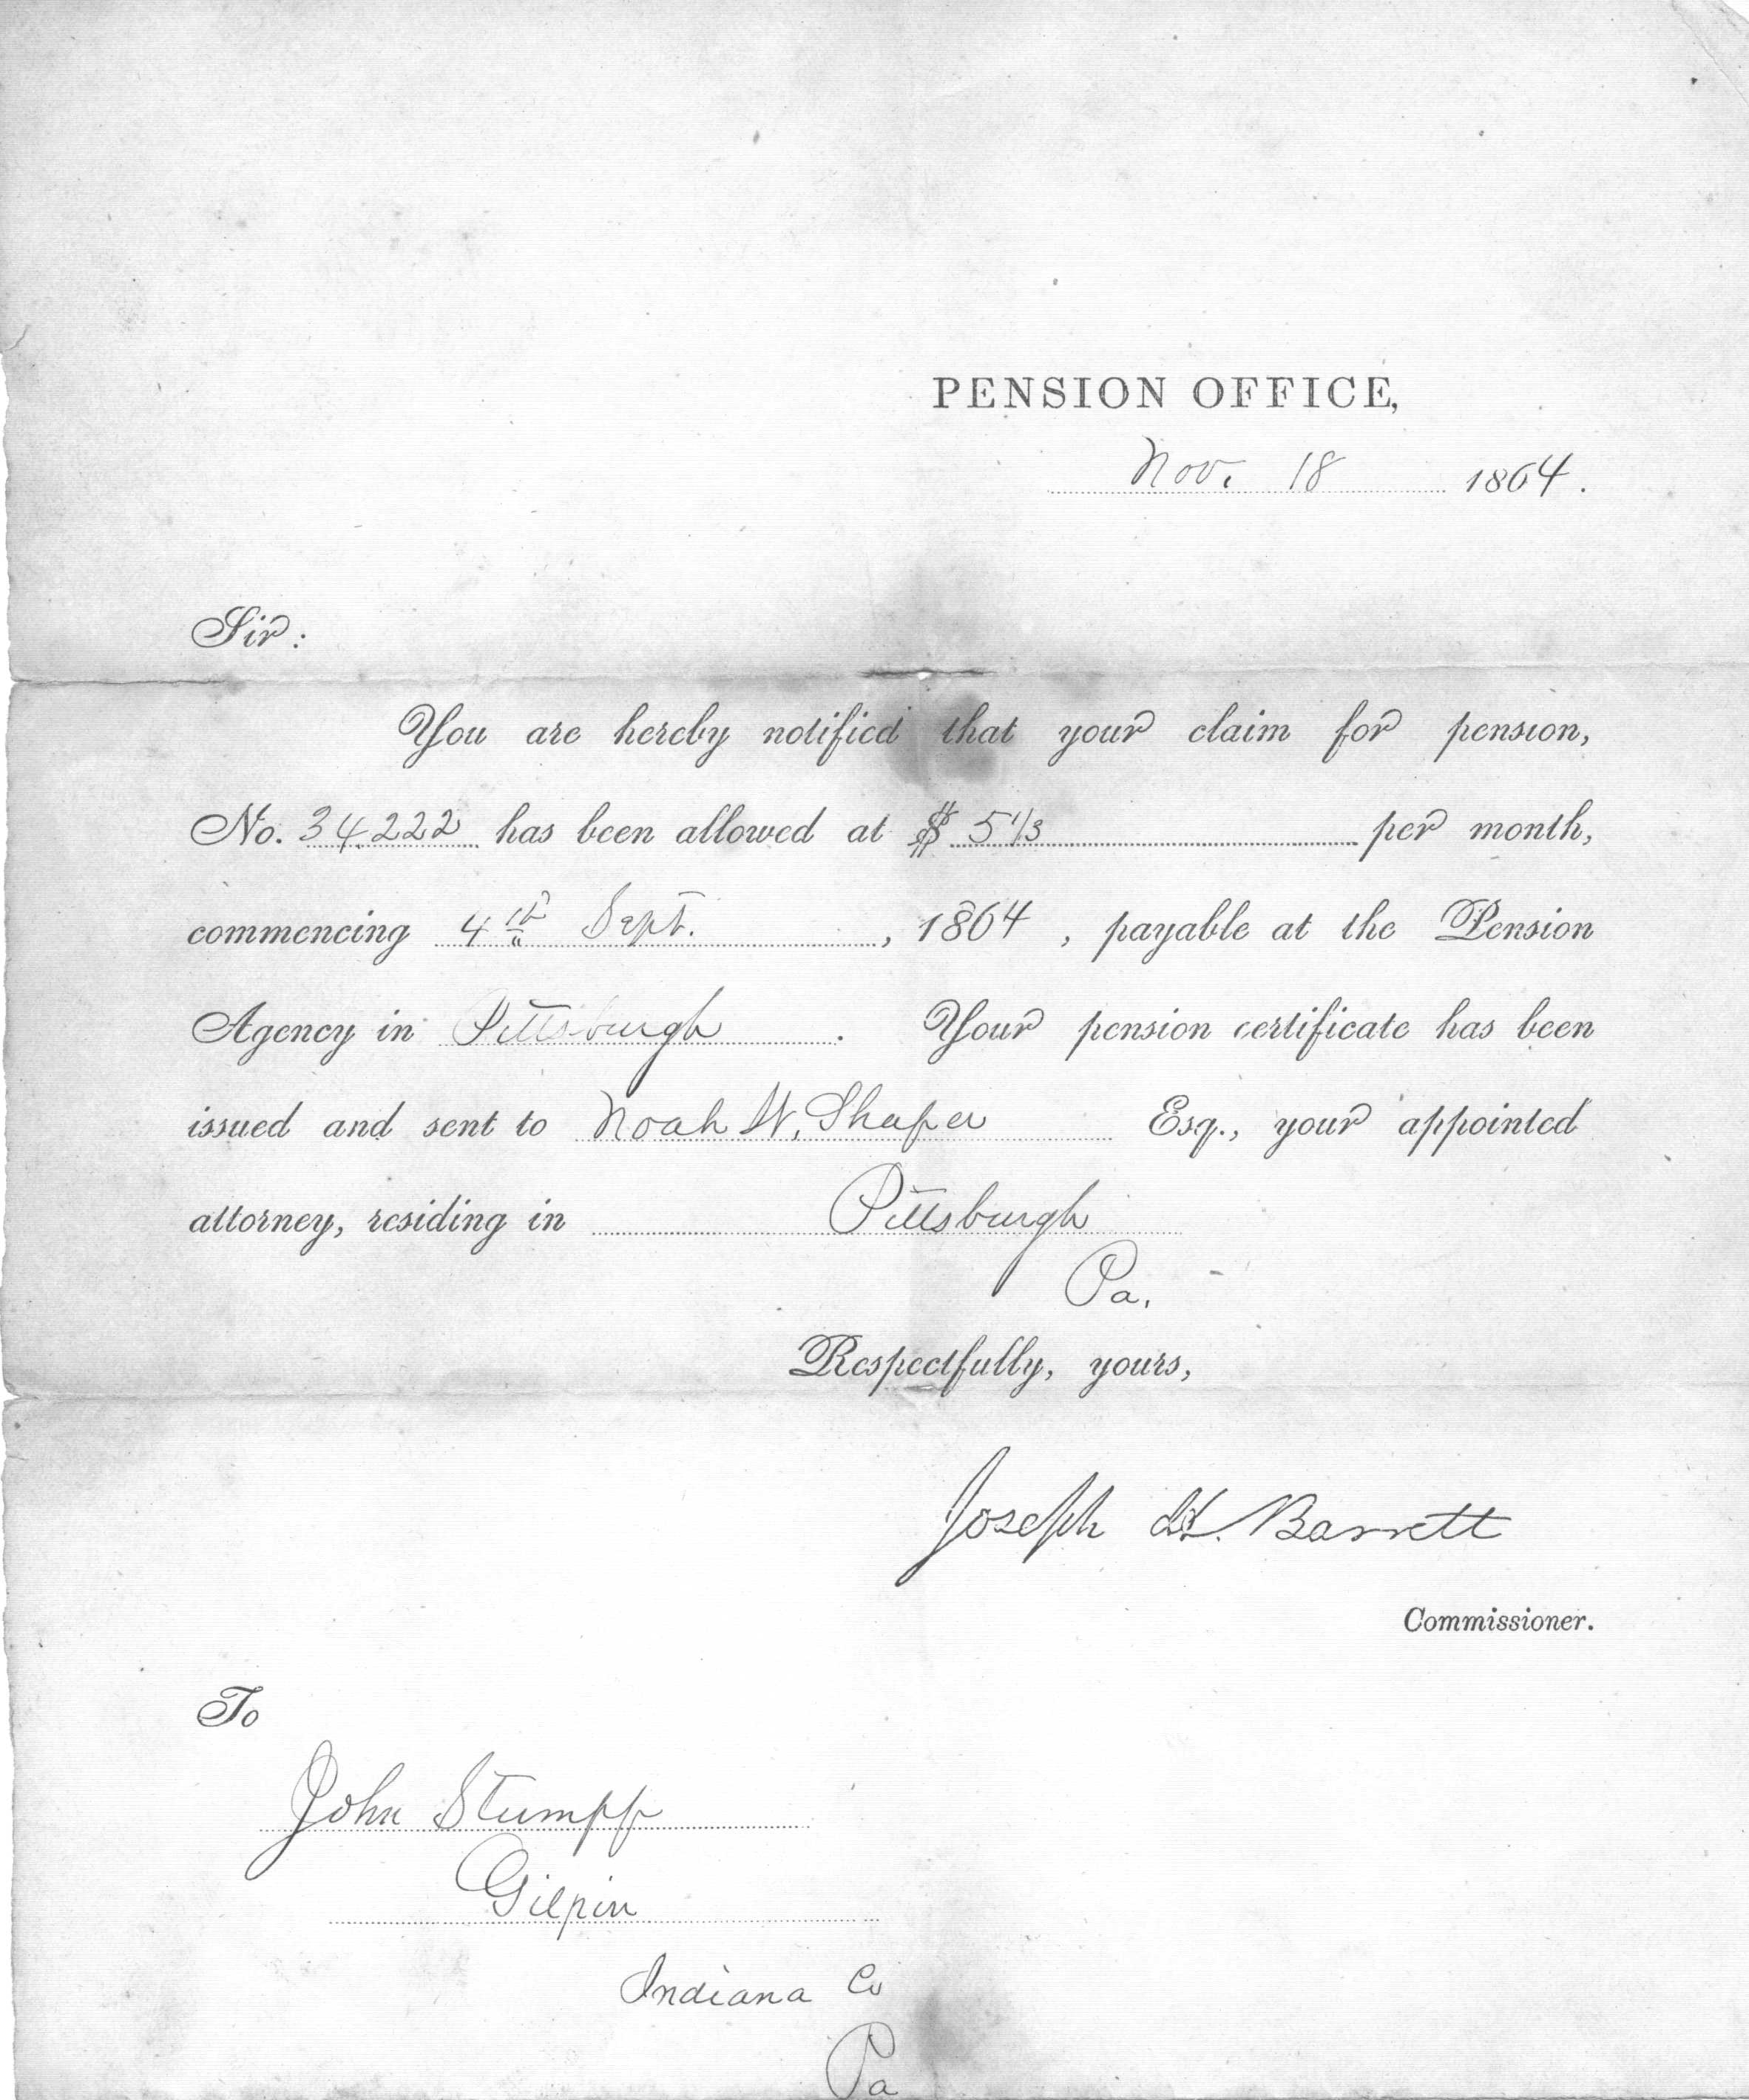 PENSION OFFICE,
Nov. 18 1864.
Sir:
You are hereby notified that your claim for pension,
No. 34.222 has been allowed at $ 5 1/3 per month,
commencing 4th Sept. , 1864 , payable at the Pension
Agency in Pittsburgh . Your pension certificate has been
issued and sent to Noah W. Shafer Esq., your appointed
attorney, residing in Pittsburgh
Pa.
Respectfully, yours,
Joseph H. Barrett
Commissioner.
To
John Stumpf
Gilpin
Indiana Co
Pa